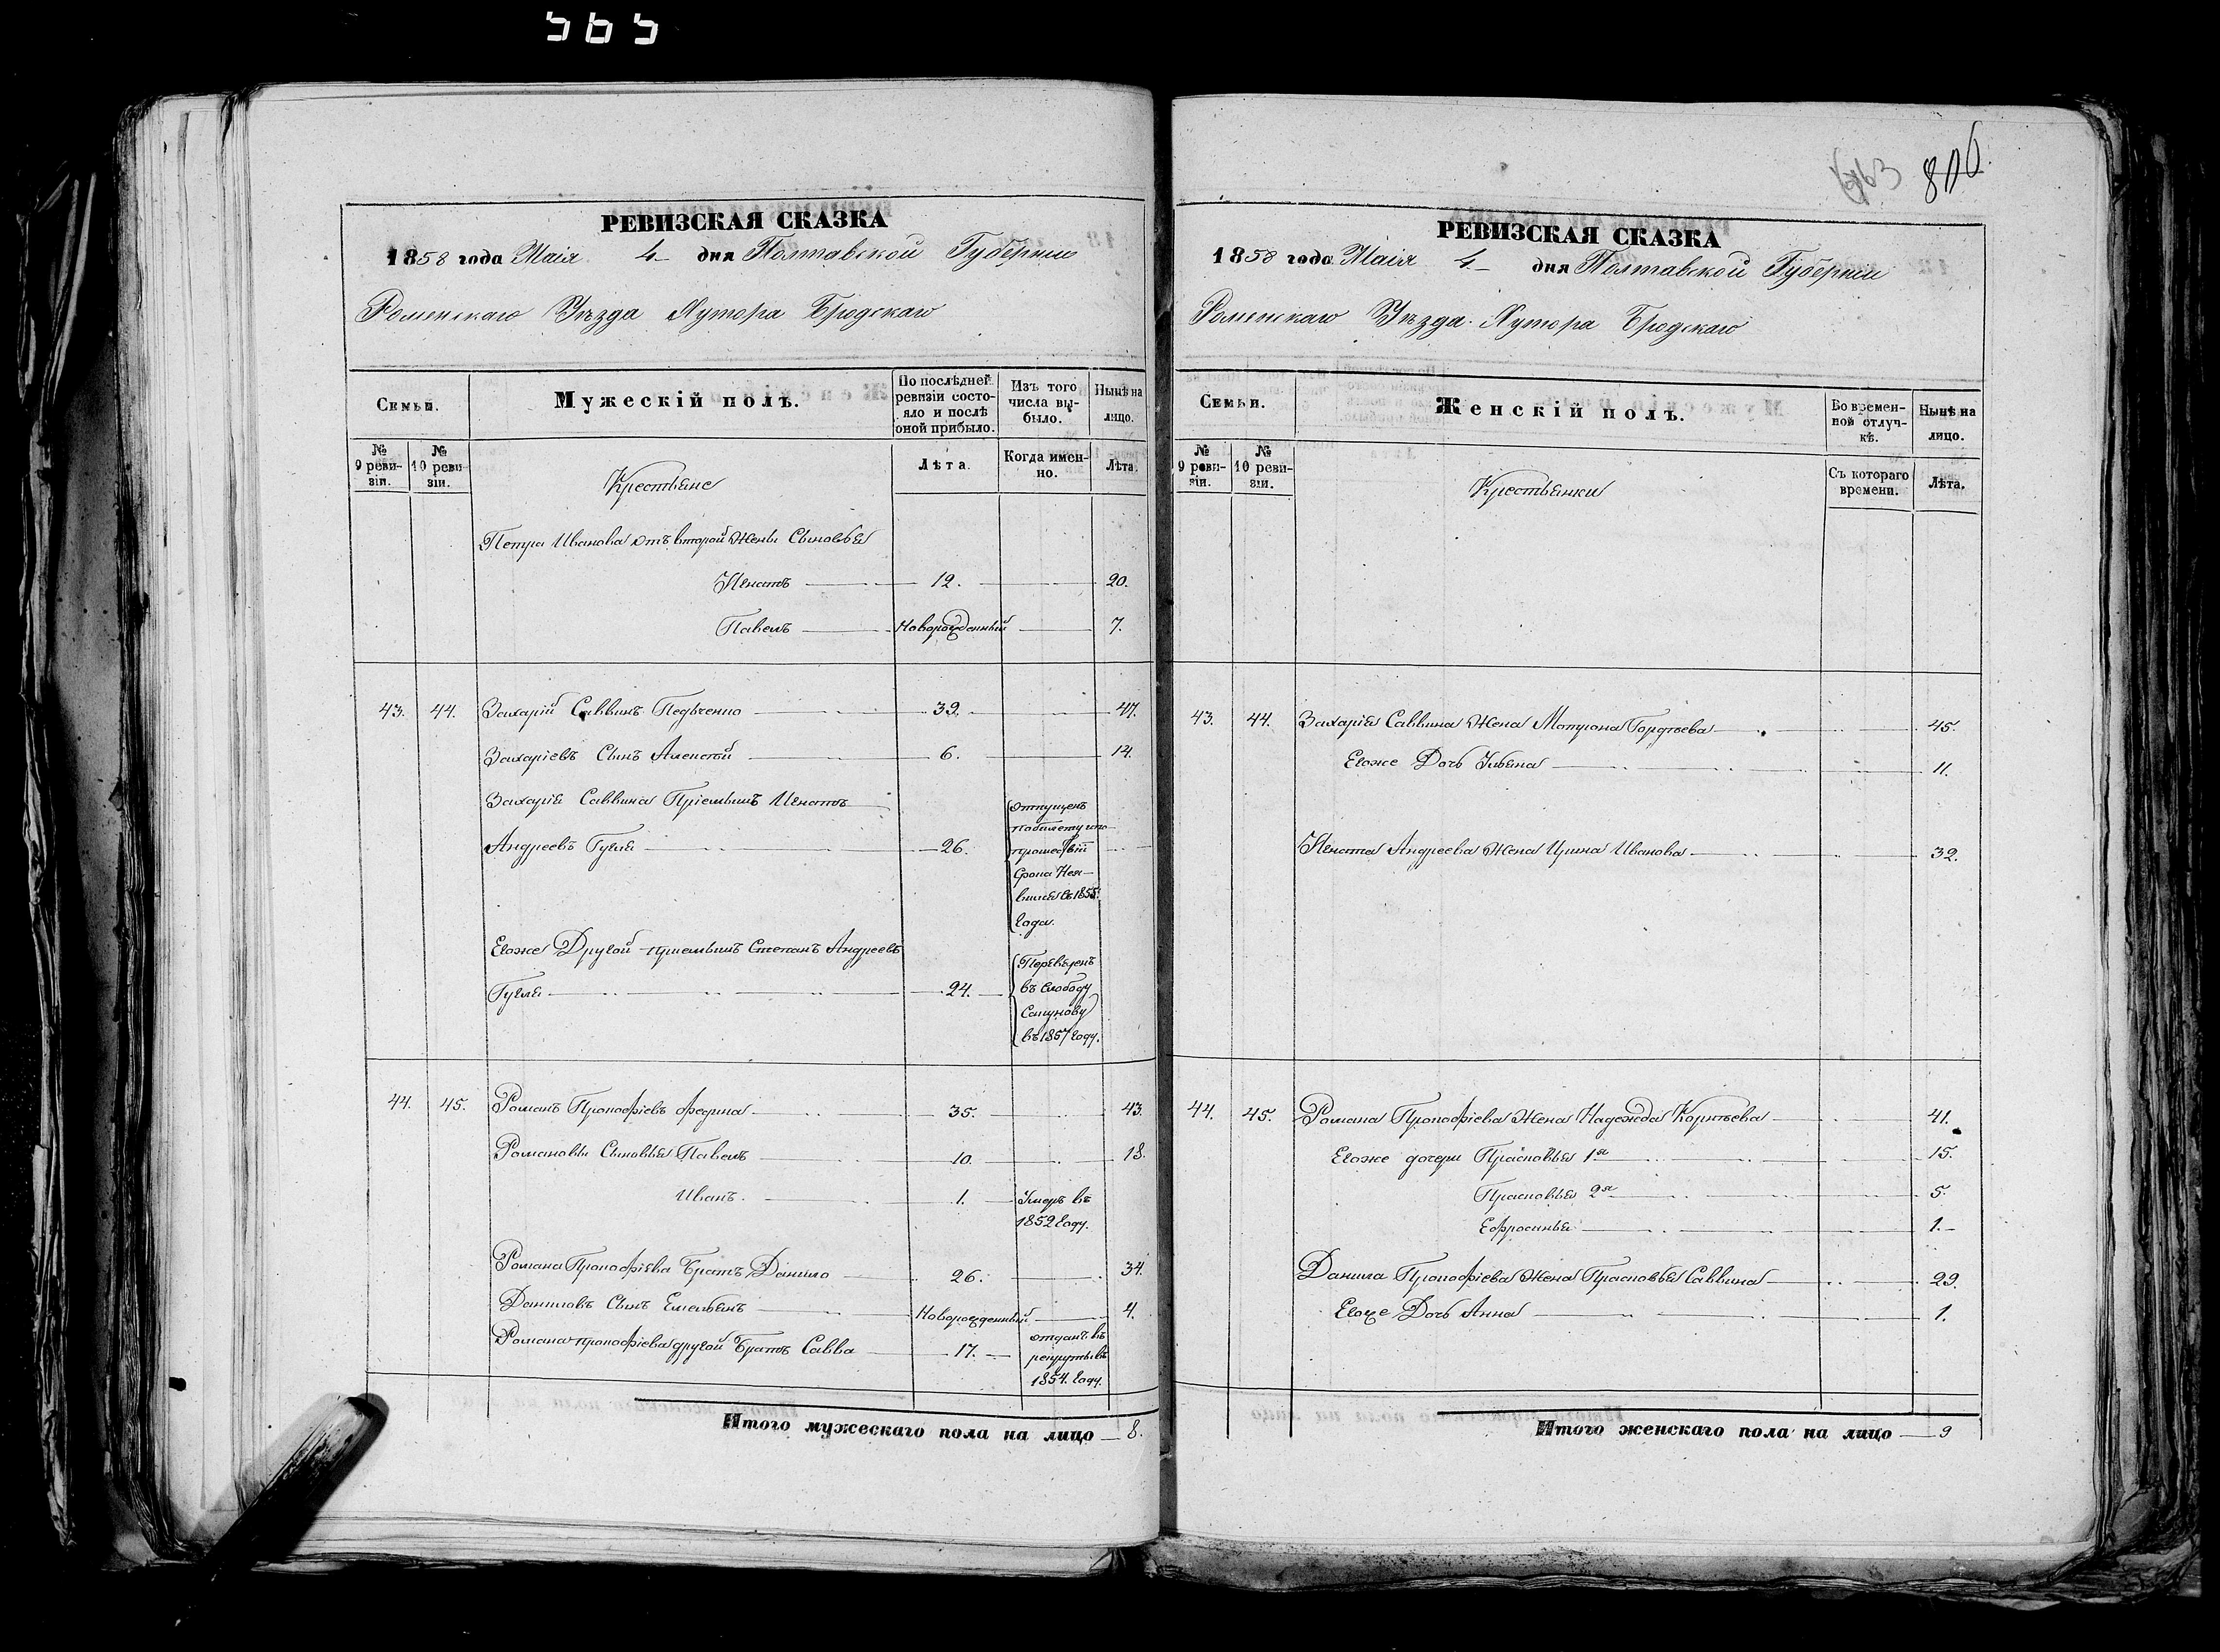 565
РЕВИЗСКАЯ СКАЗКА
1858 года Маія 4 дня Полтавской Губерніи
Роменскаго Уѣзда Хутора Бродскаго
Семьи.
Мужескій полъ.
По послѣдней ревизіи состояло и послѣ оной прибыло.
Изъ того числа выбыло.
Нынѣ на лицо.
№ 9 ревизіи.
№ 10 ревизіи.
Крестьяне
Лѣта.
Когда именно.
Лѣта.
Петра Иванова отъ второй Жены Сыновья
Игнатъ 12. 20.
Павелъ Новорожденный 7.
43. 44. Захарій Саввинъ 39. 47.
Захаріевъ Сынъ Алексѣй 6. 14.
Захарія Саввина Пріемышъ Игнатъ
Андреевъ Гугля 26.
отпущенъ
по билету и по
прошествіи
срока Неявился съ 1855.
года.
Егоже Другой пріемышъ Степанъ Андреевъ
Гугля 24.
Переведенъ
въ слободу
въ 1857 году.
44. 45. Романъ Прокофіевъ 35. 43.
Романовы Сыновья Павелъ 10. 18.
Иванъ. 1. Умеръ въ
1852 году.
Романа Прокофіева Братъ Данило 26. 34.
Даниловъ Сынъ Емельянъ Новорожденный 4.
Романа Прокофіева другой Братъ Савва 17. отданъ въ
рекруты въ
1854. году.
Итого мужескаго пола на лицо 8.
806.
РЕВИЗСКАЯ СКАЗКА
1858 года Маія 4 дня Полтавской Губерніи
Роменскаго Уѣзда Хутора Бродскаго
Семьи.
Женскій полъ.
Во временной отлучкѣ.
Нынѣ на лицо.
№ 9 ревизіи.
№ 10 ревизіи.
Крестьянки
Съ котораго времени.
Лѣта.
43. 44. Захарія Саввина Жена Матрона Гордѣева 45.
Егоже Дочь Ульяна 11.
Игната Андреева Жена Ирина Иванова 32.
44. 45. Романа Прокофіева Жена Надежда Корнѣева 41.
Егоже дочери Прасковья 1я 15.
Прасковья 2я 5.
Ефросинья 1.
Данила Прокофіева Жена Прасковья Саввина 29.
Егоже Дочь Анна 1.
Итого женскаго пола на лицо 9